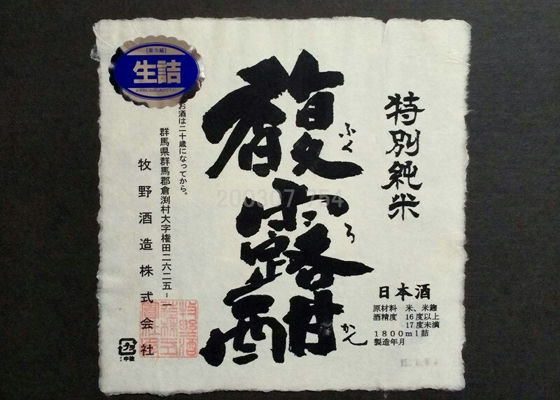 特別純米
馥露酣
ふくろかん
要冷蔵
生詰
お酒は二十歳になってから。
群馬県群馬郡倉渕村大字権田二六二五-一
牧野酒造株式会社
日本酒
原材料 米、米麹
酒精度 16度以上
17度未満
1800ml詰
製造年月